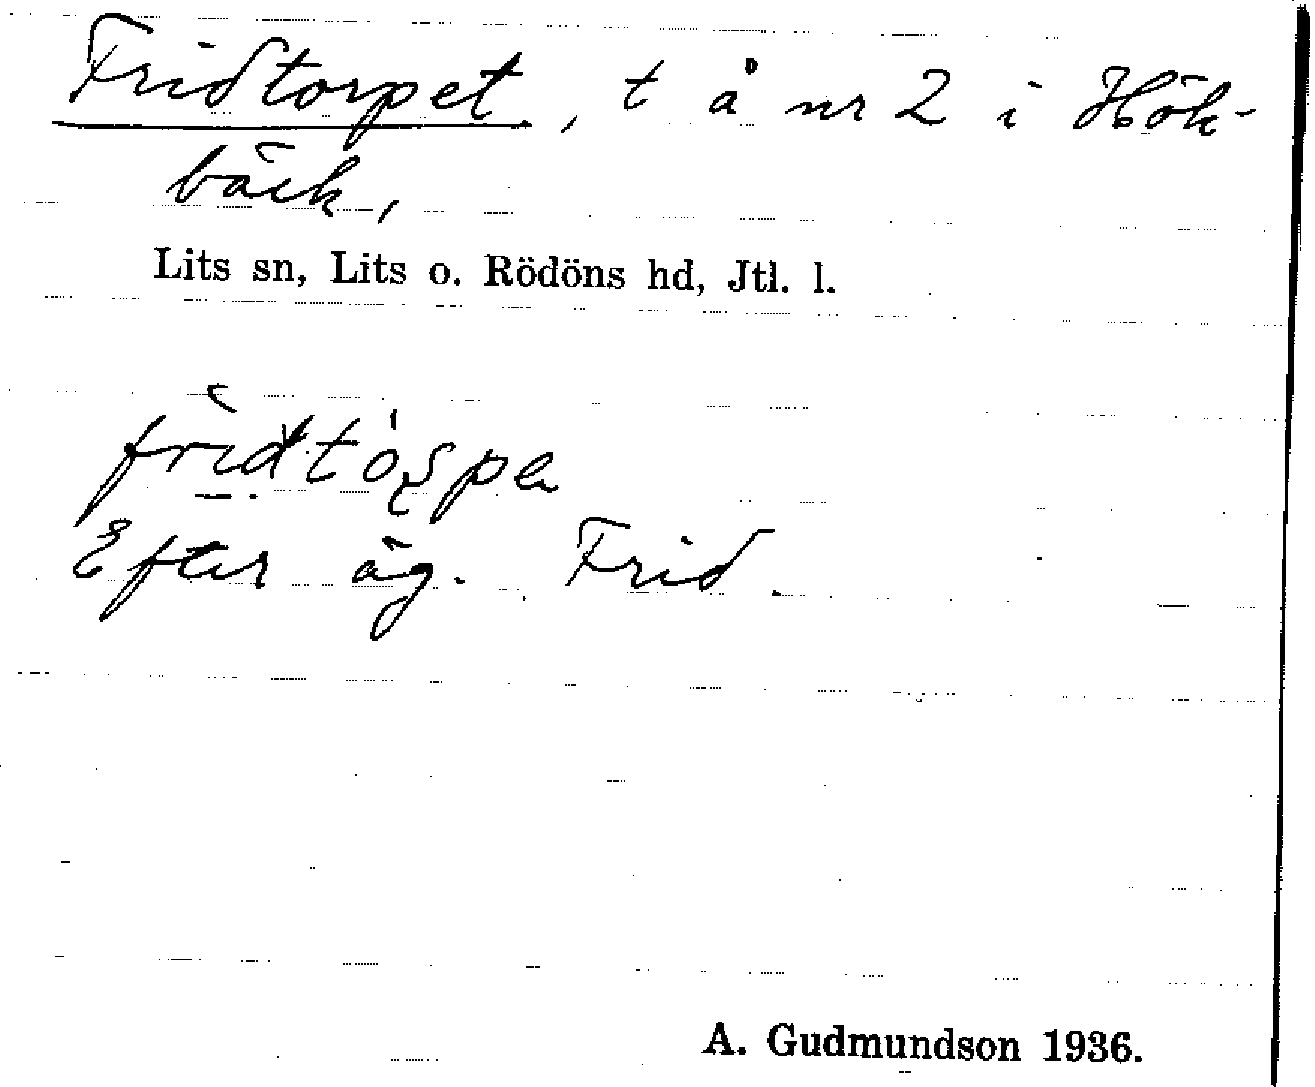 Fridtorpet, t å nr 2 i Hök-
bäck,
Lits sn, Lits o. Rödöns hd, Jtl. l.
Efter äg. Frid.
A. Gudmundson 1936.